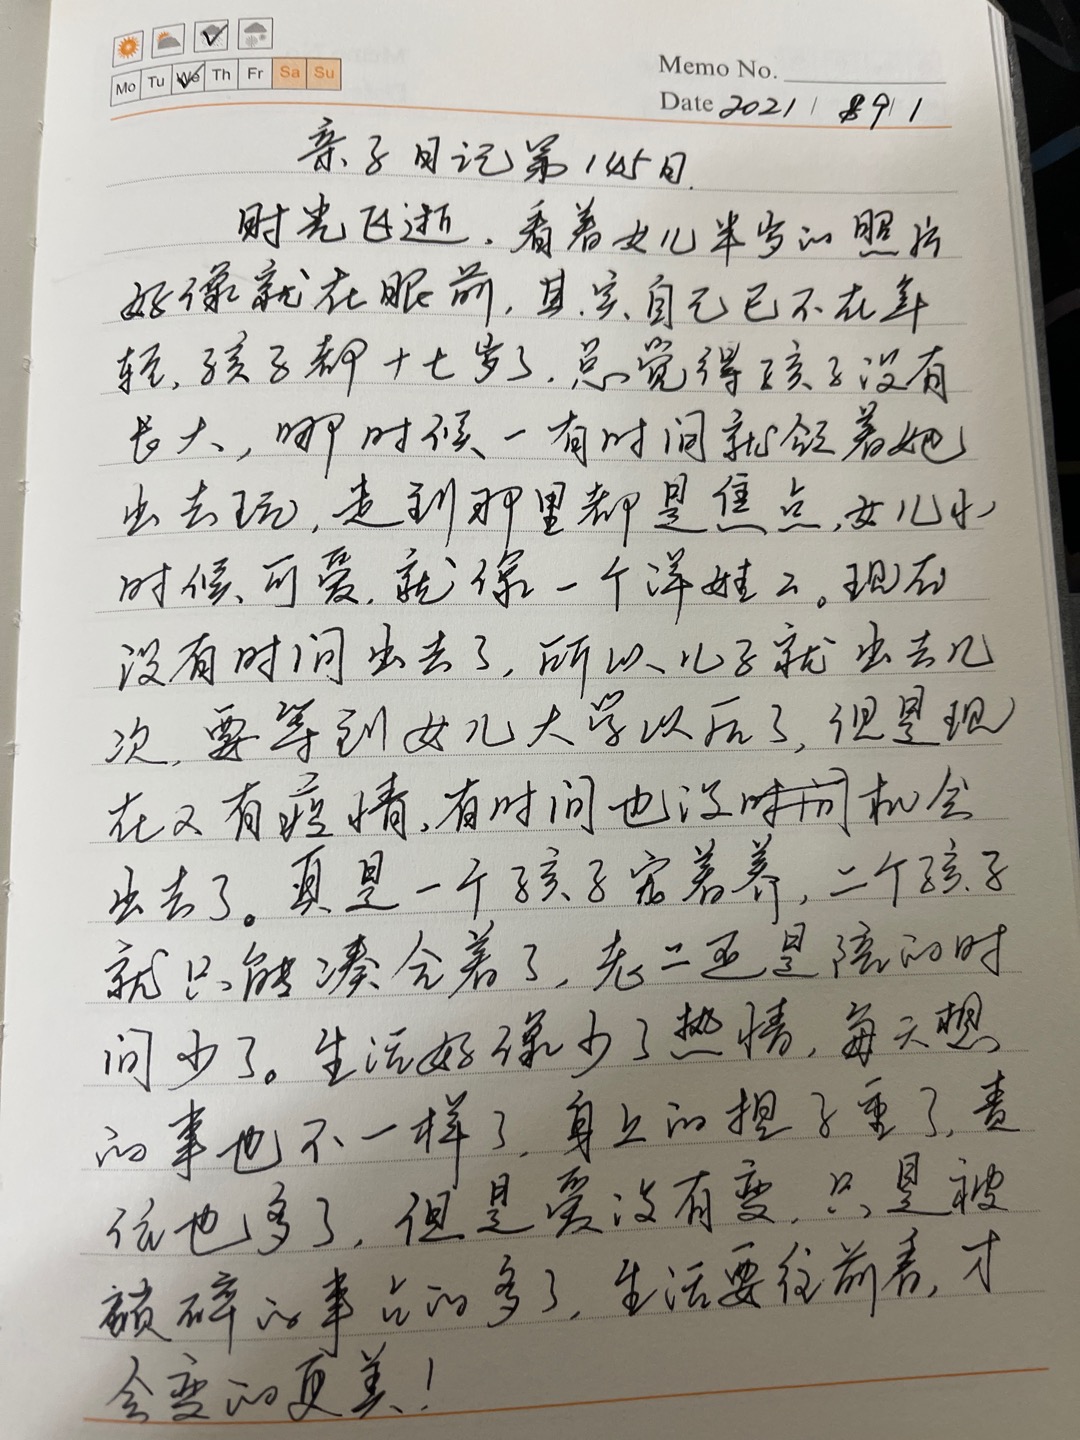 Mo Tu We Th Fr Sa Su
Memo No.
Date 2021 / 9 / 1
亲子日记第145日.
时光飞逝,看着女儿半岁的照片
好像就在眼前,其实自己已不在年
轻,孩子都十七岁了,总觉得孩子没有
长大,那时候一有时间就领着她
出去玩,走到那里都是焦点,女儿小
时候可爱,就像一个洋娃娃。现在
没有时间出去了,所以儿子就出去几
次,要等到女儿大学以后了,但是现
在又有疫情,有时间也没时间机会
出去了。真是一个孩子宠着养,二个孩子
就只能凑合着了,老二还是陪的时
间少了。生活好像少了热情,每天想
的事也不一样了,身上的担子重了,责
任也多了,但是爱没有变,只是被
琐碎的事占的多了,生活要往前看,才
会变的更美!